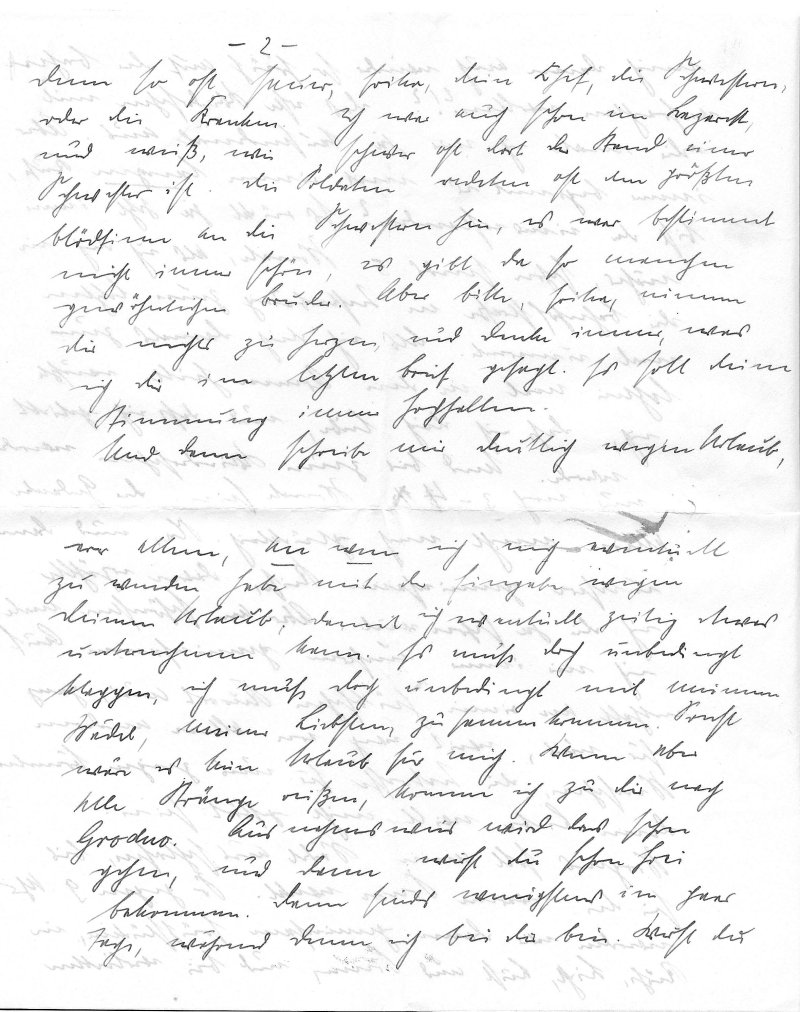 - 2 -
denn so oft sauer, Erika, dein Chef, die Schwestern,
oder die Kranken. Ich war auch schon im Lazarett,
und weiß, wie schwer oft dort der Stand einer
Schwester ist. Die Soldaten redeten oft den größten
blödsinn an die Schwestern hin, es war bestimmt
nicht immer schön, es gibt da so manchen
gewöhnlichen bruder. Aber bitte, Erika, nimm
dir nichts zu herzen, und denke immer, was
ich dir im letzten brief gesagt. Es soll deine
Stimmung immer hochhalten.
Und dann schreibe mir deutlich wegen Urlaub,
vor allem, an wen ich mich eventuell
zu wenden habe mit der Eingabe wegen
deinem Urlaub, damit ich eventuell zeitig etwas
unternehmen kann. Es muß doch unbedingt
klappen, ich muß doch unbedingt mit meinem
Mädel, meiner Liebsten, zusammenkommen. Sonst
wäre es kein Urlaub für mich. Wenn aber
alle Stränge reißen, komme ich zu dir nach
Grodno. Ausnahmsweis wird das schon
gehen, und dann wirst du schon frei
bekommen. Dann sinds wenigstens ein paar
Tage, während denen ich bei dir bin. Wirst du